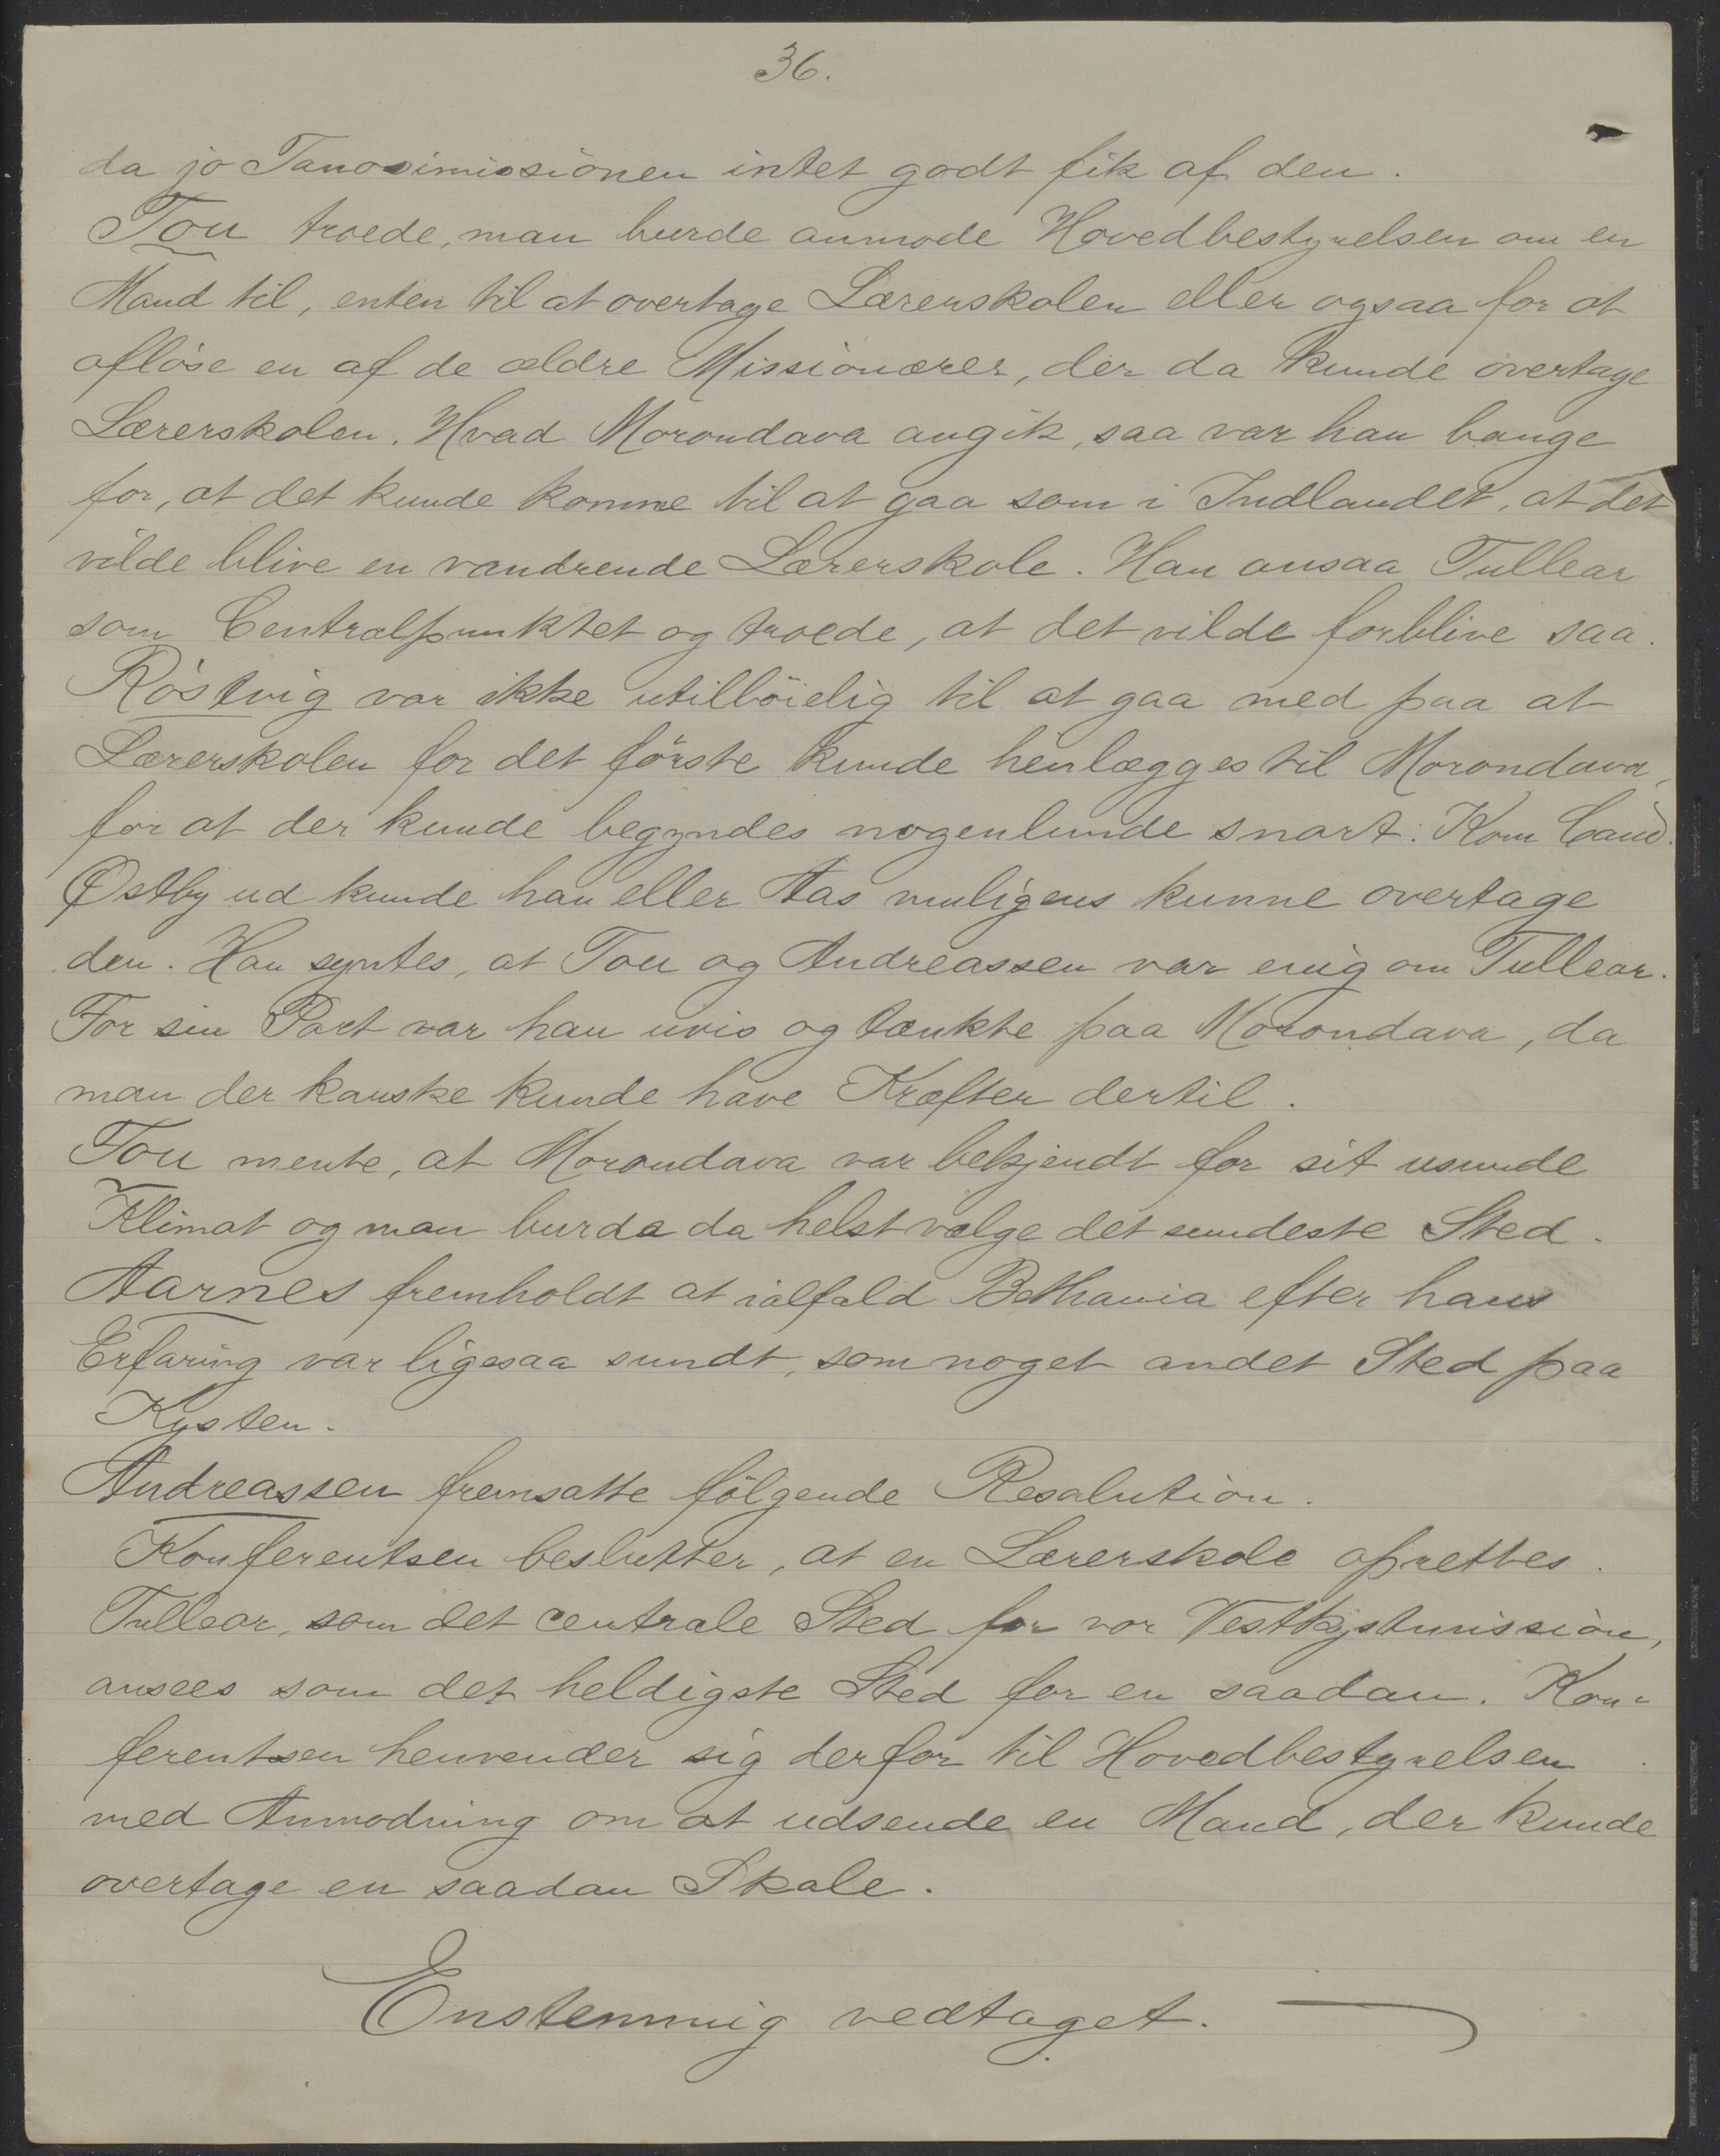 36.
da jo Tanosimissionen intet godt fik af den.
Tou troede, man burde anmode Hovedbestyrelsen om en
Mand til, enten til at overtage Lærerskolen eller ogsaa for at
afløse en af de ældre Missionærer, der da kunde overtage
Lærerskolen. Hvad Morondava angik, saa var han bange
for, at det kunde komme til at gaa som i Indlandet, at det
vilde blive en vandrende Lærerskole. Han ansaa Tullear
som Centralpunktet og troede, at det vilde forblive saa.
Röstvig var ikke utilböielig til at gaa med paa at
Lærerskolen for det förste kunde henlægges til Morondava,
for at der kunde begyndes nogenlunde snart. Kom Cand.
Østby ud kunde han eller Aas muligens kunne overtage
den. Han syntes, at Tou og Andreassen var enig om Tullear.
For sin Part var han uvis og tænkte paa Morondava, da
man der kanske kunde have Kræfter dertil.
Tou mente, at Morondava var bekjendt for sit usunde
Klimat og man burda da helst vælge det sundeste Sted.
Aarnes fremholdt at ialfald Bethania efter hans
Erfaring var ligesaa sundt, som noget andet Sted paa
Kysten.
Andreassen fremsatte fölgende Resolution.
Konferentsen beslutter, at en Lærerskole oprettes.
Tullear, som det centrale Sted for vor Vestkystmission,
ansees som det heldigste Sted for en saadan. Kon-
ferentsen henvender sig derfor til Hovedbestyrelsen
med Anmodning om at udsende en Mand, der kunde
overtage en saadan Skole.
Enstemmig vedtaget.